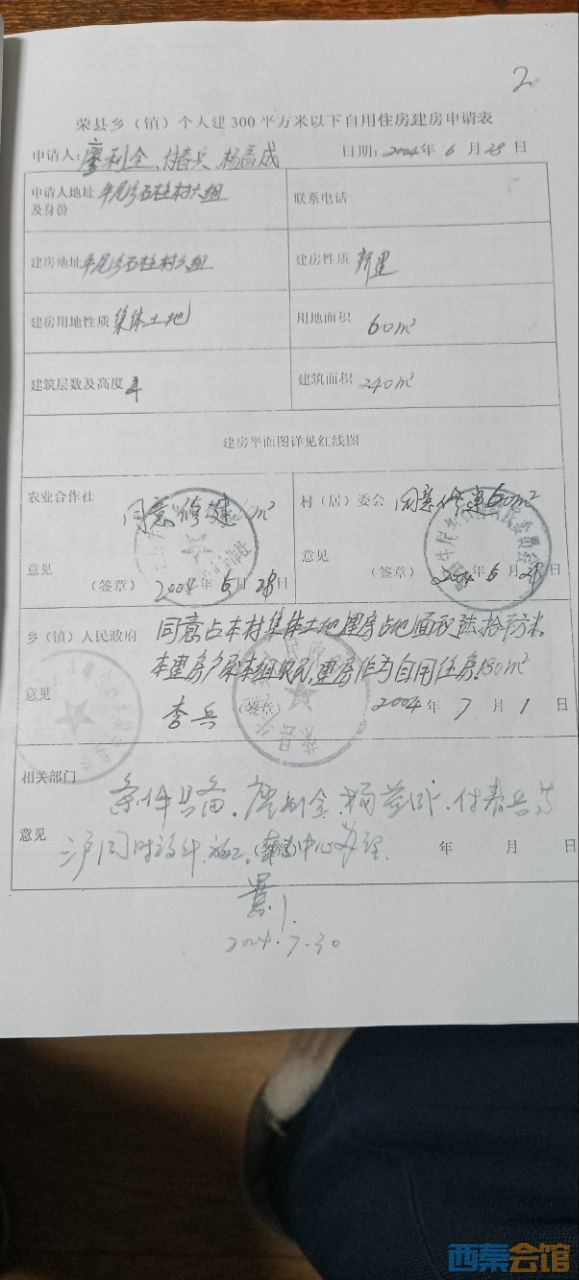 2
荣县乡（镇）个人建300平方米以下自用住房建房申请表
申请人：廖利全、付春兵、杨益成 日期：2004年6月28日
申请人地址及身份 牟尼湾石柱村六组 联系电话
建房地址 牟尼湾石柱村六组 建房性质 新建
建房用地性质 集体土地 用地面积 60m²
建筑层数及高度 4 建筑面积 240m²
建房平面图详见红线图
农业合作社 同意修建 m²
意见
（签章） 2004年6月28日
村（居）委会 同意修建60m²
意见
（签章） 2004年6月28日
乡（镇）人民政府 同意占本村集体土地建房占地面积陆拾平方米，
本建房户系本组农民，建房作为自用住房，180m²
意见 李兵 （签章） 2004年7月1日
相关部门 条件具备，廖利全、杨益成、付春兵等
意见 三户同时设计、施工， 中心办理 年 月 日
2004.7.30
西秦会馆